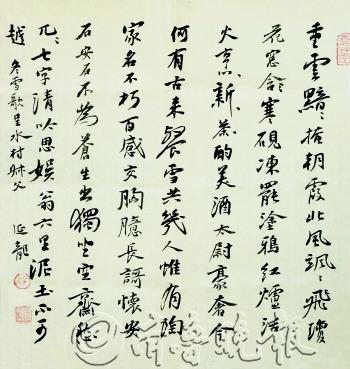 重雲黯黯掩朝霞北風颯颯飛瓊
花窓含寒硯凍罷塗鴉紅爐活
火烹新茶酌美酒太尉豪奢今
何有古来餐雪共幾人惟有陶
家名不朽百感交胸臆長謌懷安
石安石不為蒼生出獨坐空齋愁
兀兀七字清吟思娱翁六里泥玉不可
越 冬雪歌呈水村叔父 延龍
齊魯晚報